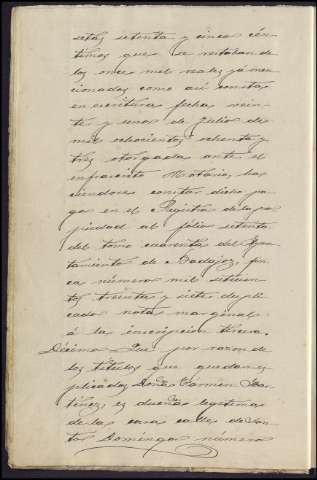 setas setenta y cinco cén-
timos que se rebajan de
los once mil reales ya men-
cionados como asi consta
en escritura fecha vein-
te y uno de Julio de
mil ochocientos ochenta y
tres otorgada ante el
infrascrito Notario, ha-
ciendose constar dicho pa-
go en el Registro de la pro-
piedad al folio setenta
del tomo cuarenta del Ayun-
tamiento de Badajoz, fin-
ca número mil setecien-
tos treinta y siete dupli-
cado nota marginal
á la inscripcion tercera.
Décimo Que por razon de
los titulos que quedan es-
plicados Doña Carmen Mar-
tinez es dueña legitima
de la casa calle de San-
to Domingo número